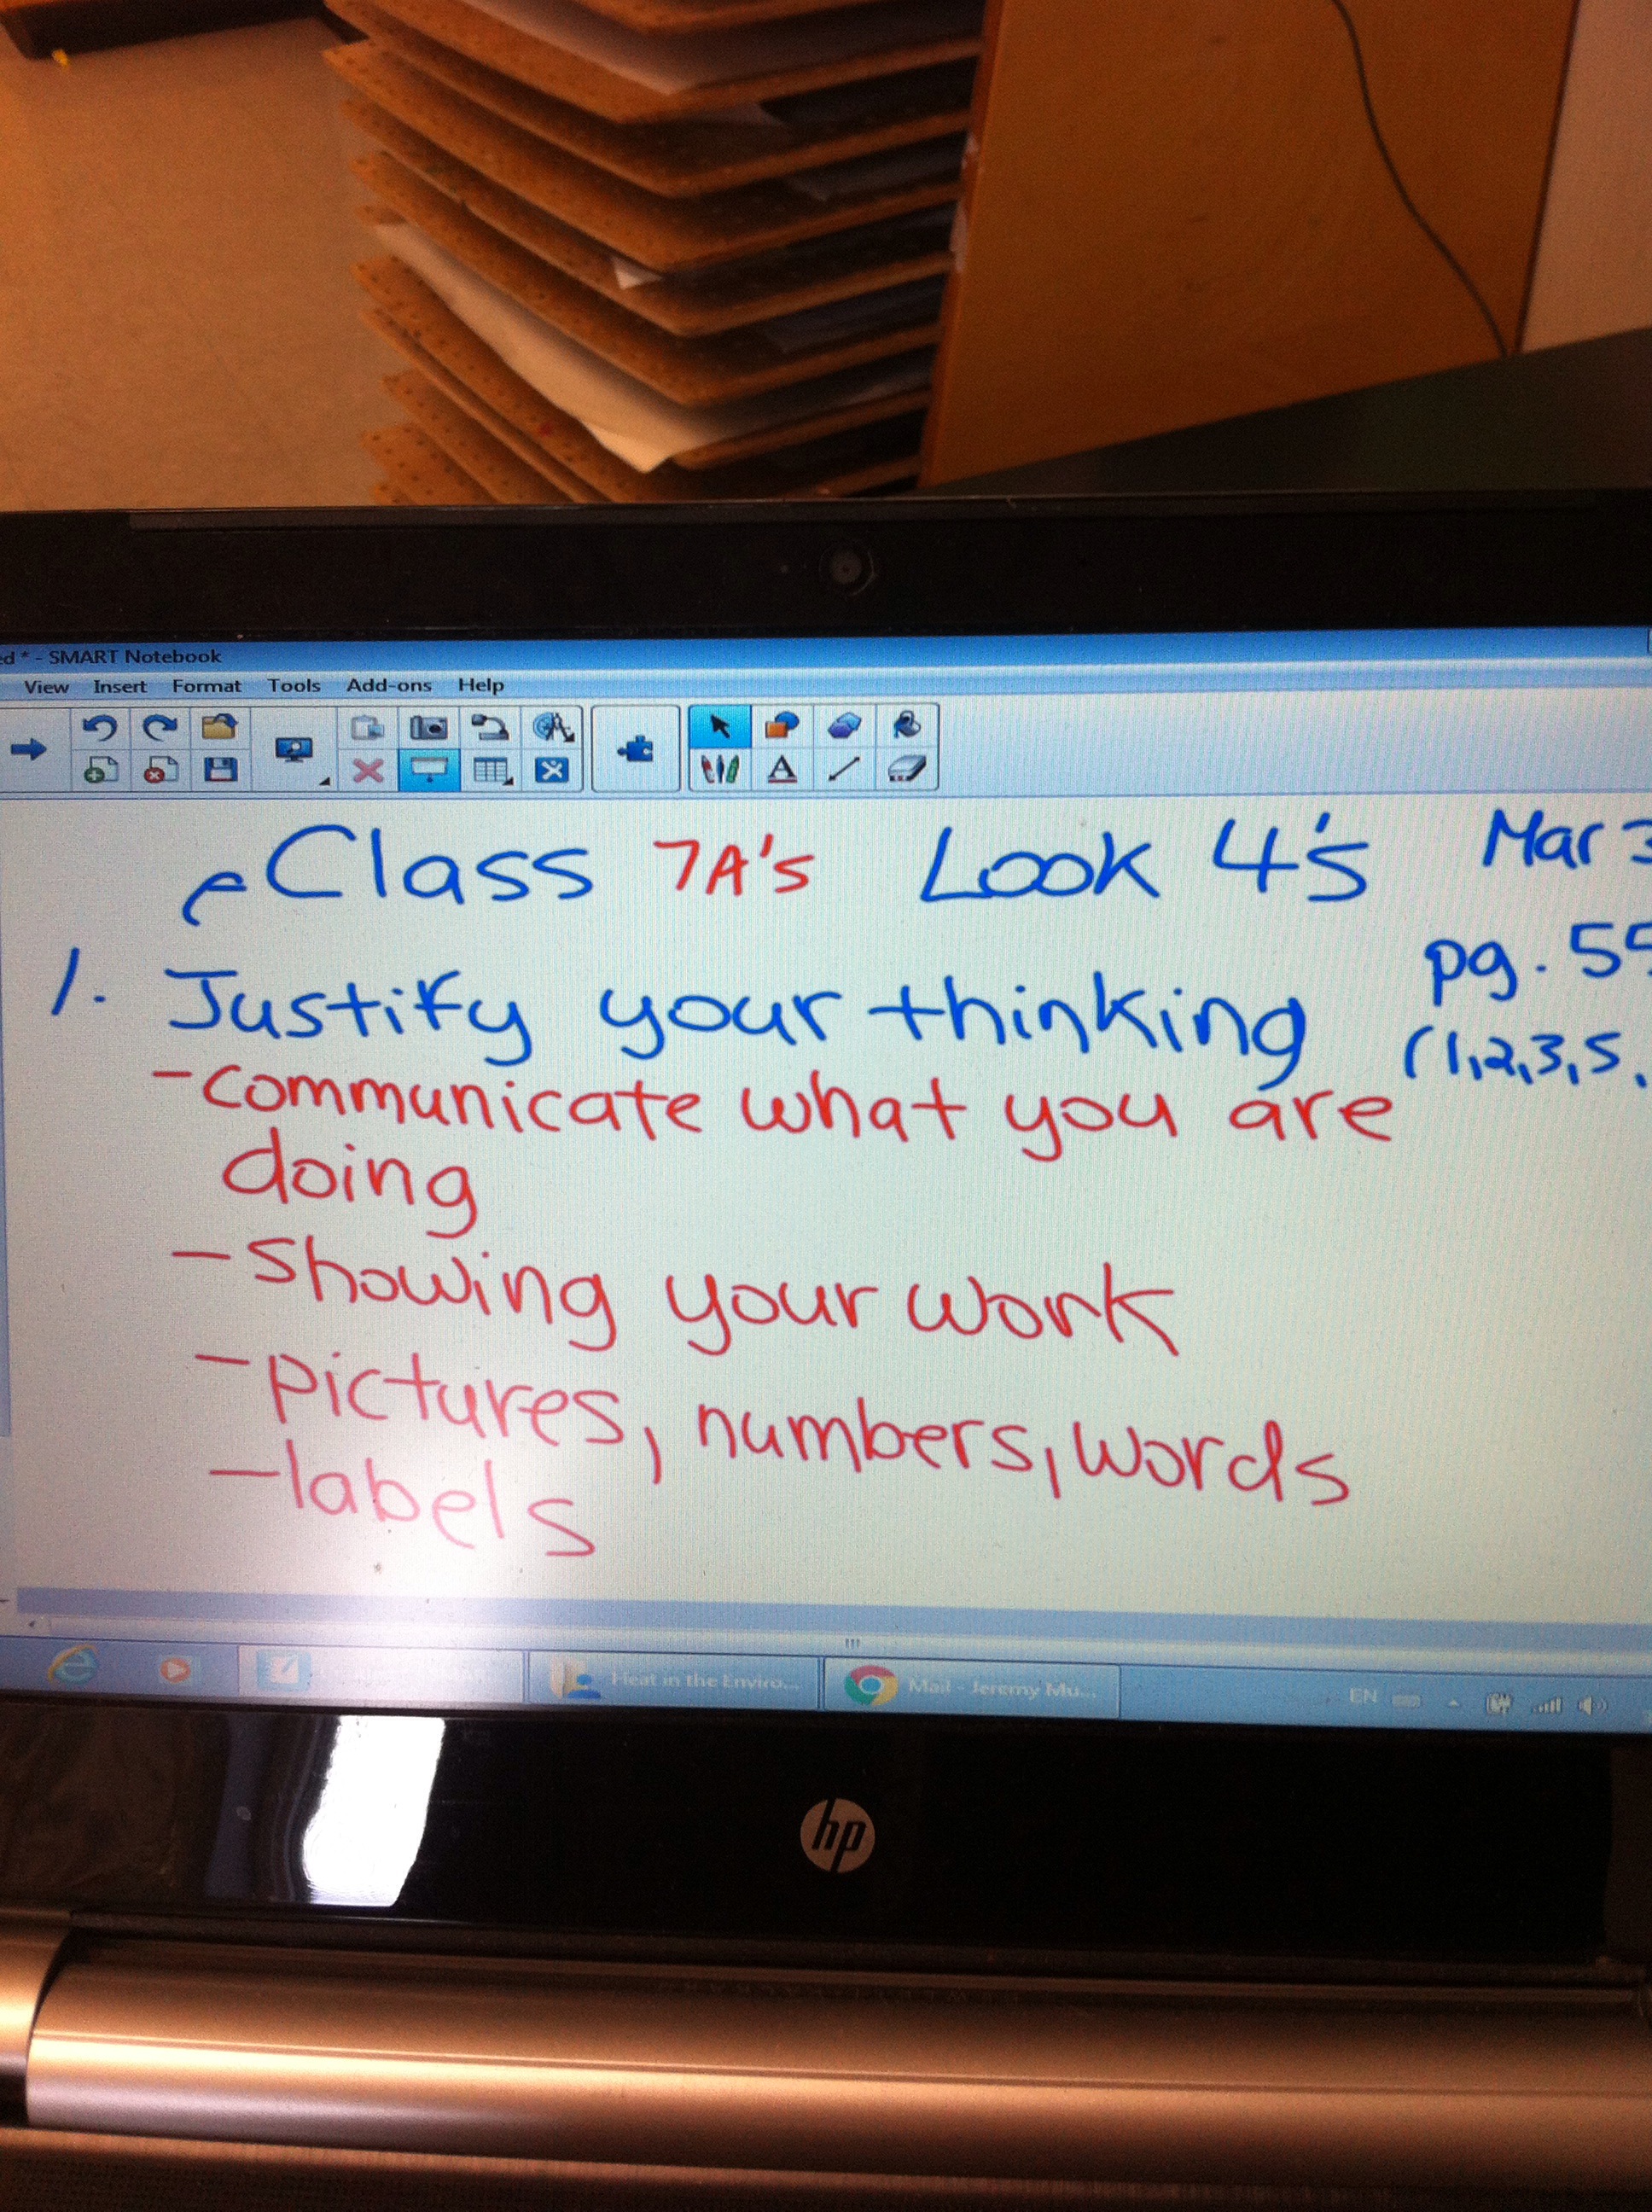 ed * - SMART Notebook
View Insert Format Tools Add-ons Help
eClass 7A's Look 4's Mar 3
1. Justify your thinking pg. 55
(1,2,3,5,
- communicate what you are
doing
- showing your work
- pictures, numbers, words
- labels
Heat in the Enviro...
Mail - Jeremy Mu...
EN
hp